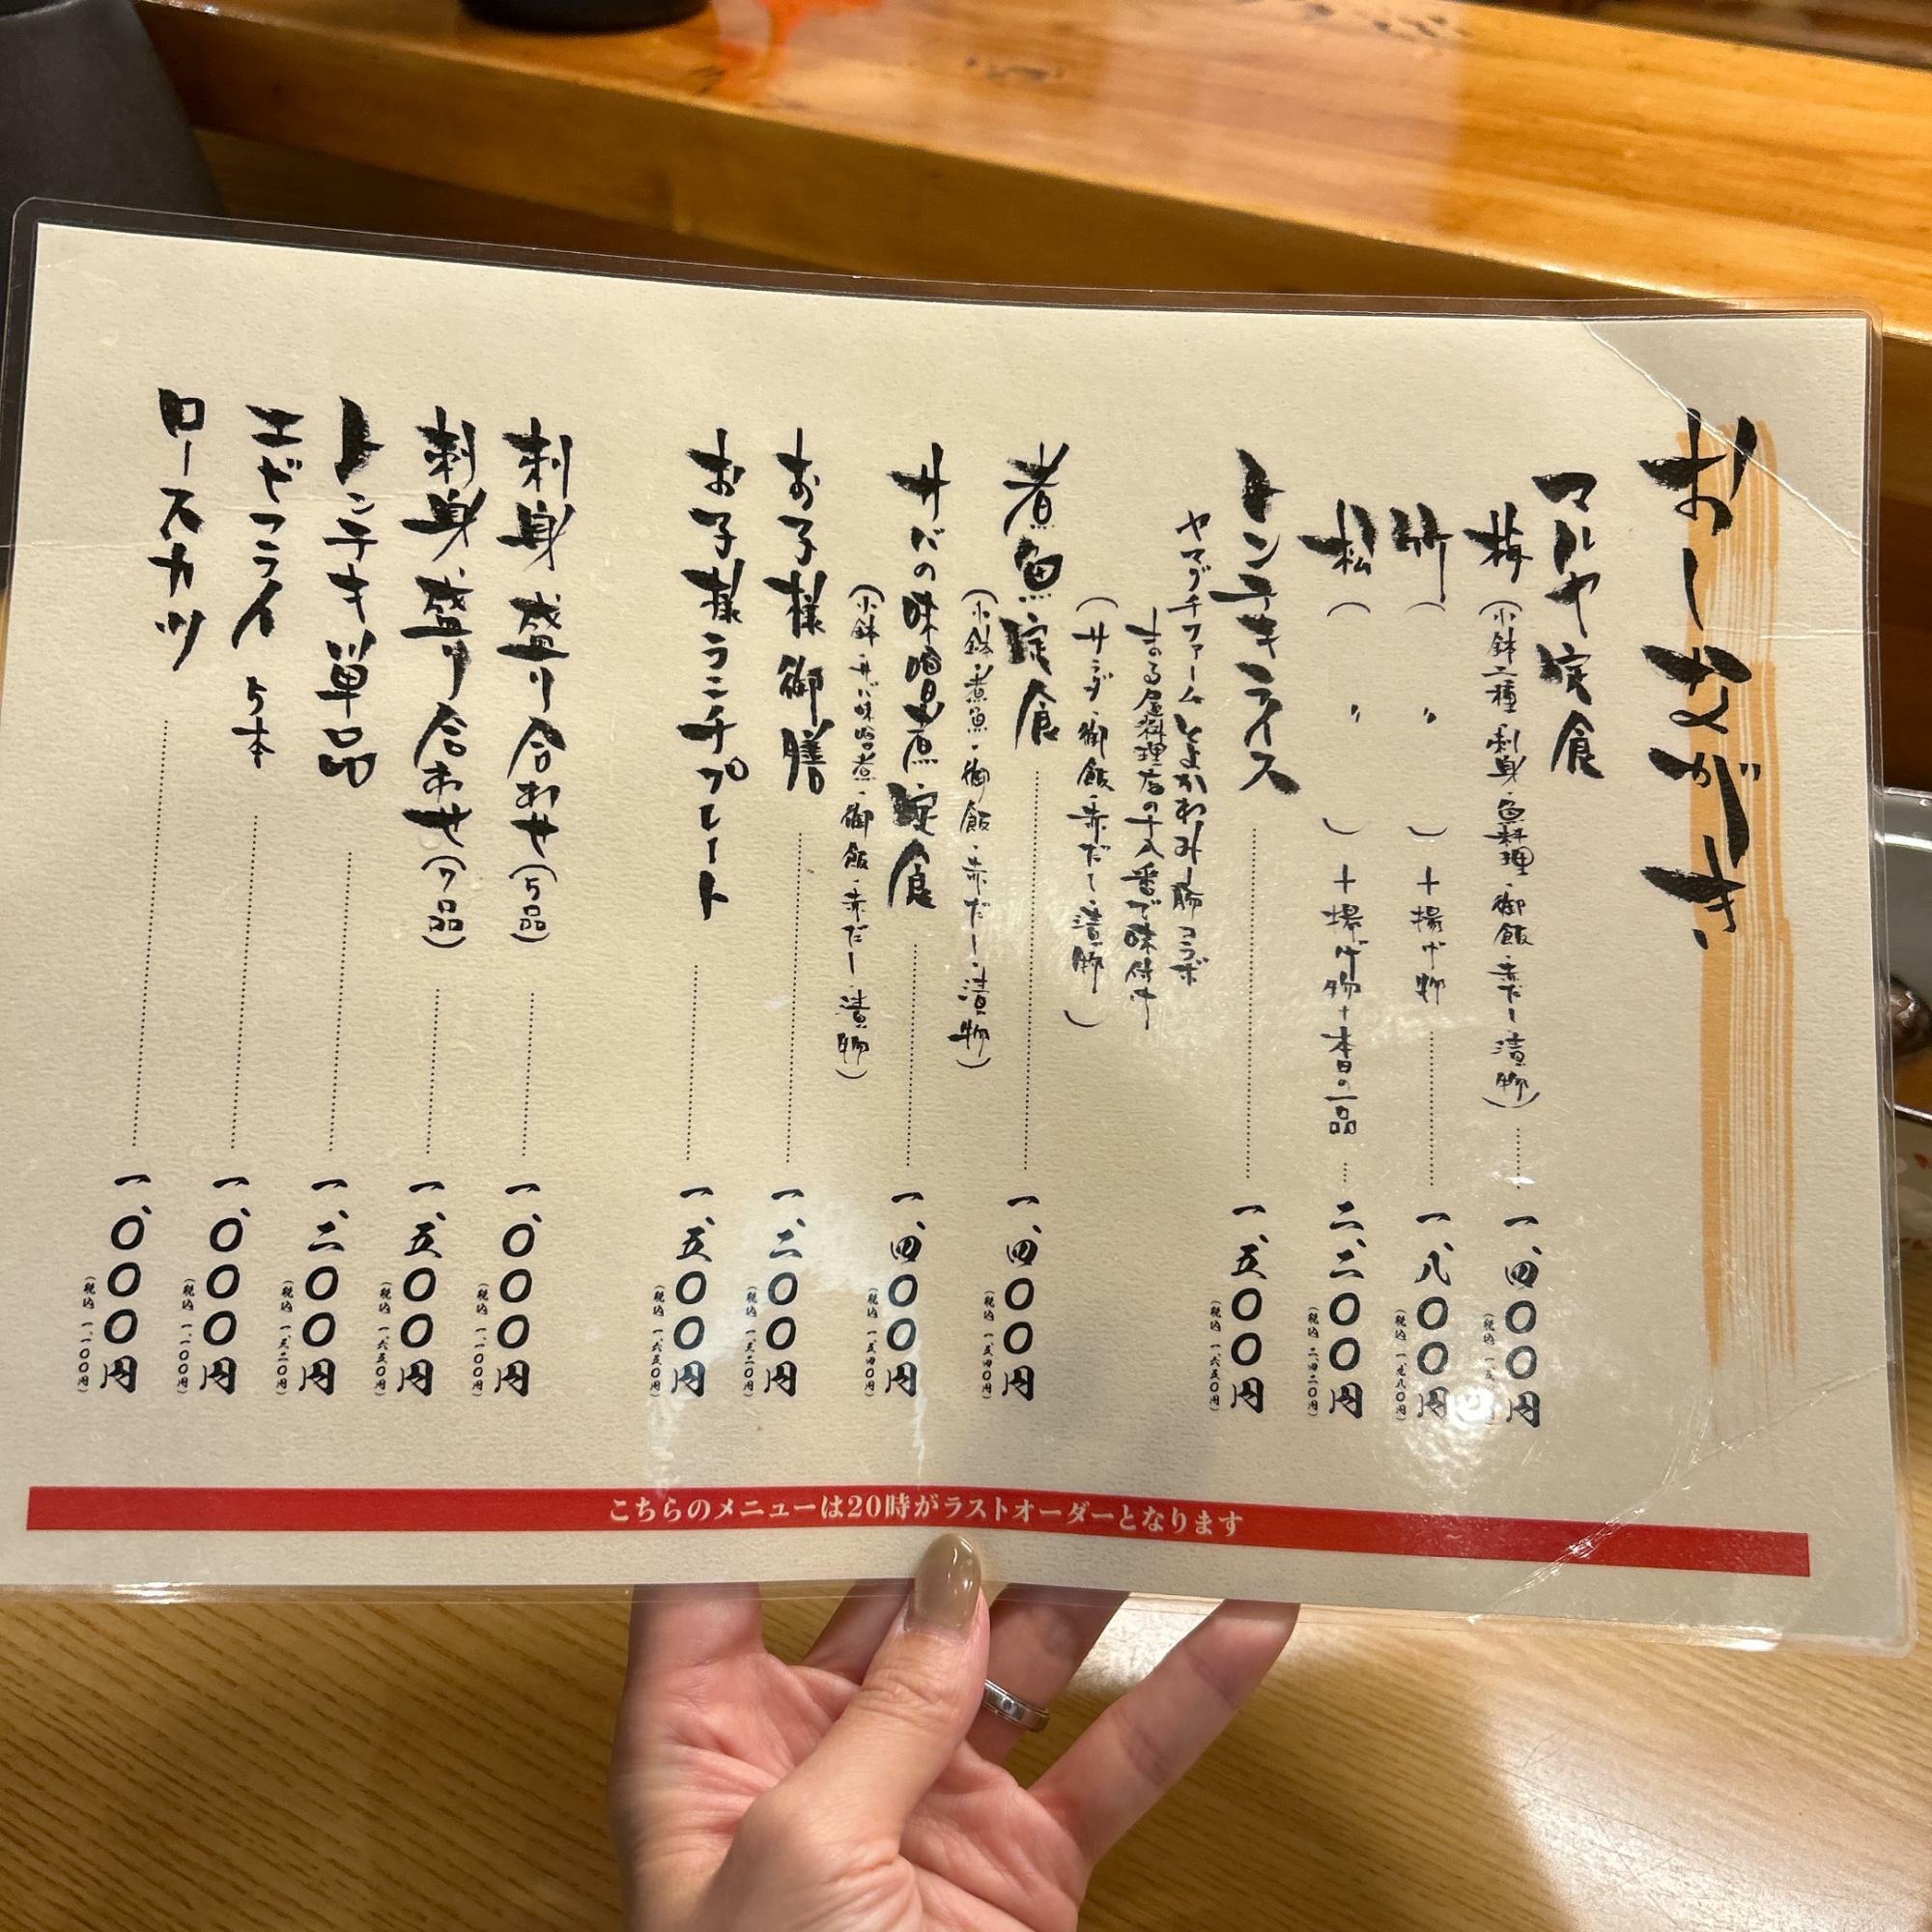 おしながき
マルヤ定食
梅(小鉢二種・刺身・魚料理・御飯・赤だし・漬物) 一、四〇〇円
竹( 〃 )+揚げ物 一、八〇〇円
(税込 一、九八〇円)
松( 〃 )+揚げ物+本日の一品 二、二〇〇円
(税込 二、四二〇円)
トンテキライス 一、五〇〇円
(税込 一、六五〇円)
ヤマブチファームとよかわみー豚コラボ
まる屋料理店の十八番で味付け
(サラダ・御飯・赤だし・漬物)
煮魚定食 一、四〇〇円
(税込 一、五四〇円)
(小鉢・煮魚・御飯・赤だし・漬物)
サバの味噌煮定食 一、四〇〇円
(税込 一、五四〇円)
(小鉢・サバ味噌煮・御飯・赤だし・漬物)
お子様御膳 一、二〇〇円
(税込 一、三二〇円)
お子様ランチプレート 一、五〇〇円
(税込 一、六五〇円)
刺身盛り合わせ(5品) 一、〇〇〇円
(税込 一、一〇〇円)
刺身盛り合わせ(7品) 一、五〇〇円
(税込 一、六五〇円)
トンテキ単品 一、二〇〇円
(税込 一、三二〇円)
エビフライ 5本 一、〇〇〇円
(税込 一、一〇〇円)
ロースカツ 一、〇〇〇円
(税込 一、一〇〇円)
こちらのメニューは20時がラストオーダーとなります